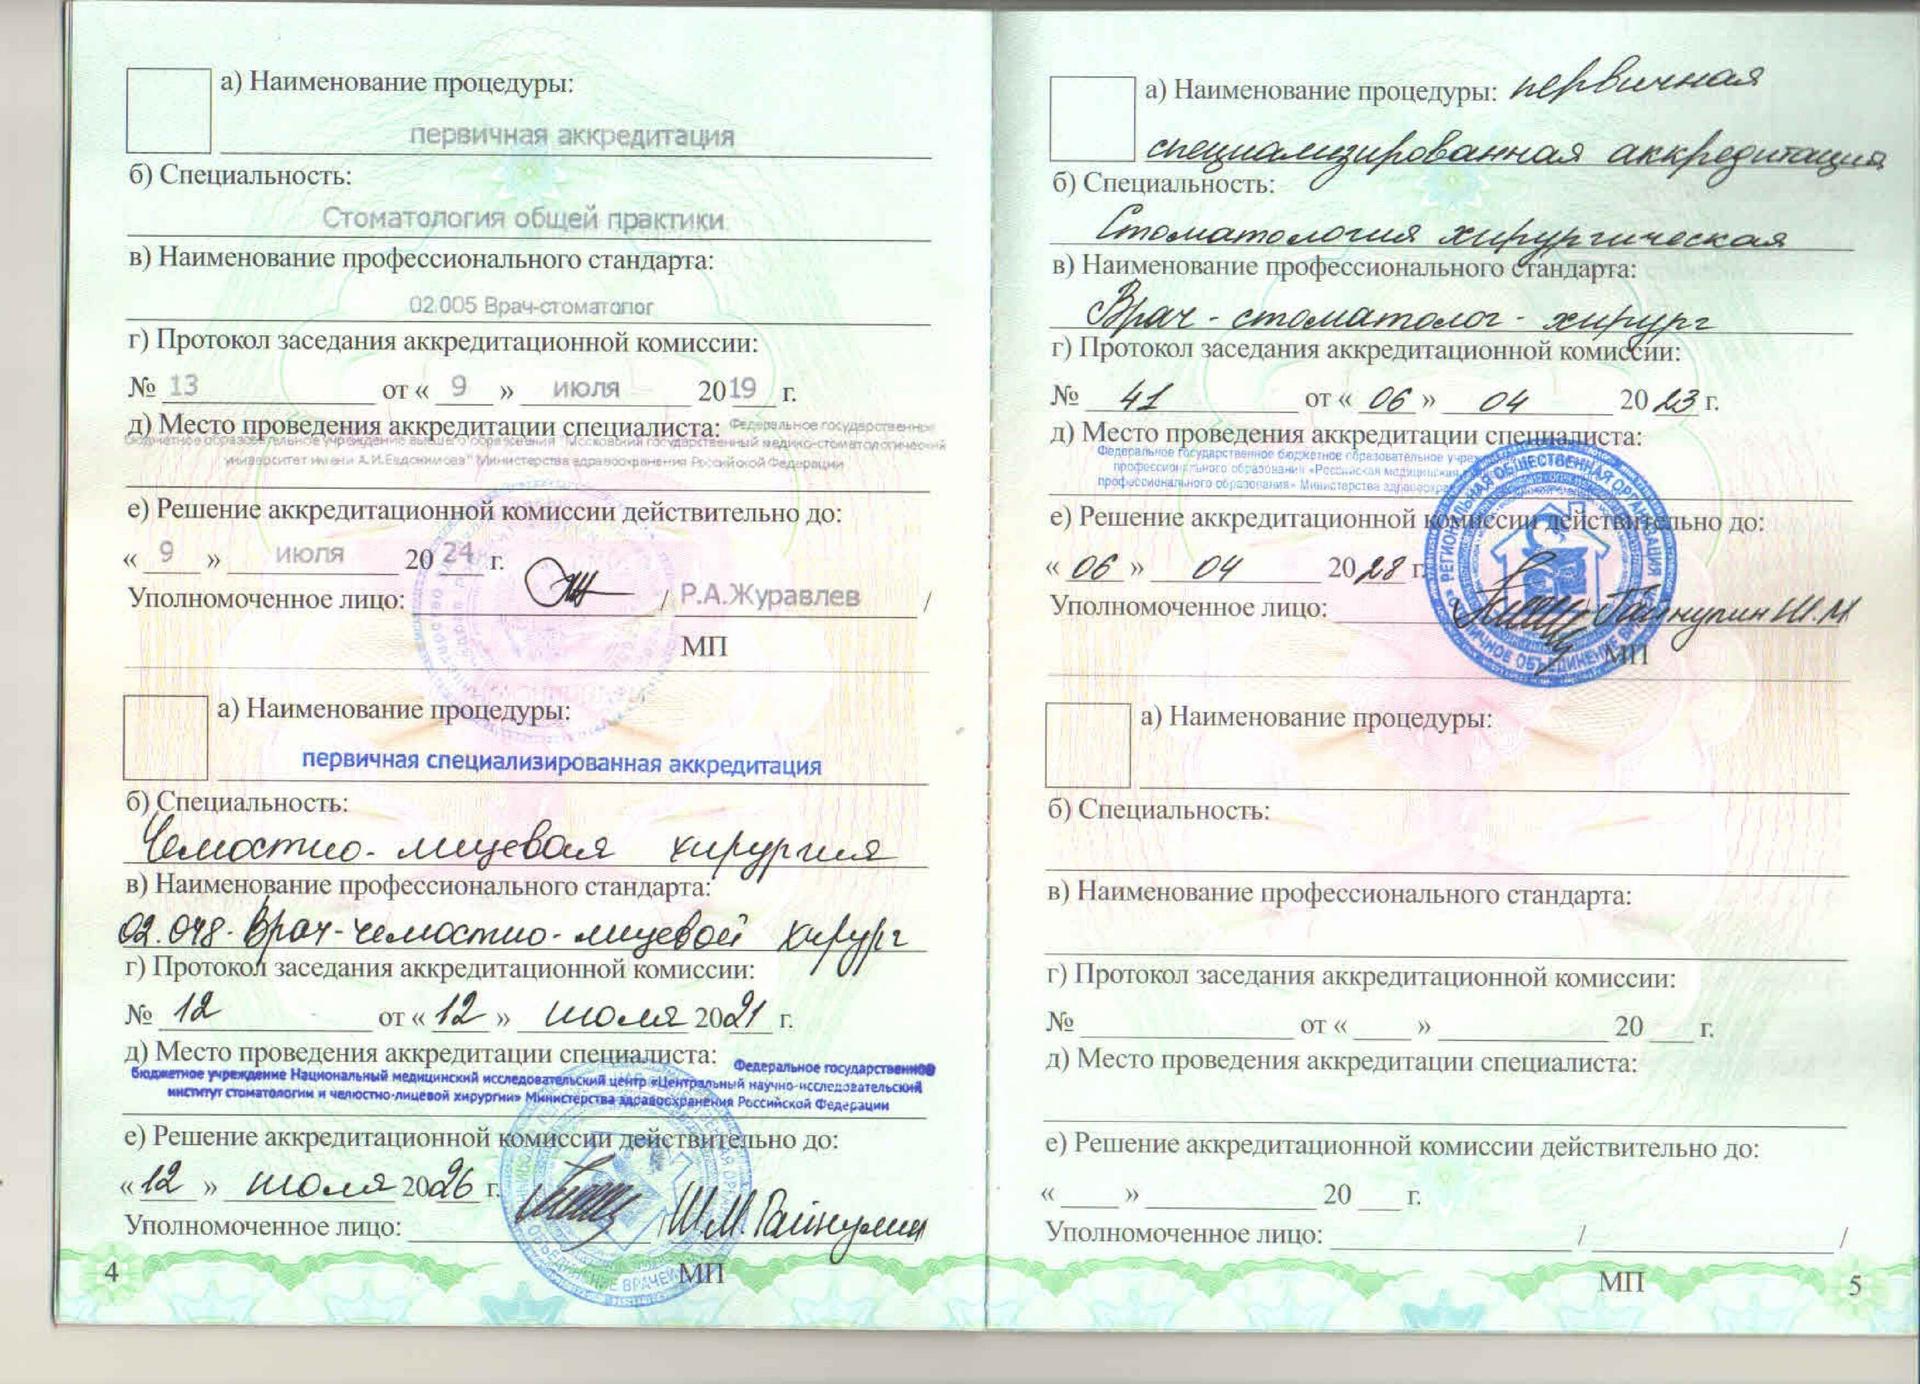 а) Наименование процедуры:
первичная аккредитация
б) Специальность:
Стоматология общей практики
в) Наименование профессионального стандарта:
02.005 Врач-стоматолог
г) Протокол заседания аккредитационной комиссии:
№ 13 от « 9 » июля 2019 г.
д) Место проведения аккредитации специалиста: Федеральное государственное
бюджетное образовательное учреждение высшего образования "Московский государственный медико-стоматологический
университет имени А.И.Евдокимова" Министерства здравоохранения Российской Федерации
е) Решение аккредитационной комиссии действительно до:
« 9 » июля 2024 г.
Уполномоченное лицо: / Р.А.Журавлев /
МП
а) Наименование процедуры:
первичная специализированная аккредитация
б) Специальность:
Челюстно-лицевая хирургия
в) Наименование профессионального стандарта:
02.048. Врач-челюстно-лицевой хирург
г) Протокол заседания аккредитационной комиссии:
№ 12 от « 12 » июля 2021 г.
д) Место проведения аккредитации специалиста: Федеральное государственное
бюджетное учреждение Национальный медицинский исследовательский центр «Центральный научно-исследовательский
институт стоматологии и челюстно-лицевой хирургии» Министерства здравоохранения Российской Федерации
е) Решение аккредитационной комиссии действительно до:
« 12 » июля 2026 г.
Уполномоченное лицо: / Ш.М. Гайнулин
МП
4
а) Наименование процедуры: первичная
специализированная аккредитация
б) Специальность:
Стоматология хирургическая
в) Наименование профессионального стандарта:
Врач-стоматолог-хирург
г) Протокол заседания аккредитационной комиссии:
№ 41 от « 06 » 04 2023 г.
д) Место проведения аккредитации специалиста:
Федеральное государственное бюджетное образовательное
профессионального образования «Российская медицинская
профессионального образования» Министерства
РЕГИОНАЛЬНАЯ ОБЩЕСТВЕННАЯ ОРГАНИЗАЦИЯ
е) Решение аккредитационной комиссии действительно до:
« 06 » 04 2028 г.
Уполномоченное лицо: Гайнулин Ш.М
МП
а) Наименование процедуры:
б) Специальность:
в) Наименование профессионального стандарта:
г) Протокол заседания аккредитационной комиссии:
№ от « » 20 г.
д) Место проведения аккредитации специалиста:
е) Решение аккредитационной комиссии действительно до:
« » 20 г.
Уполномоченное лицо: / /
МП
5